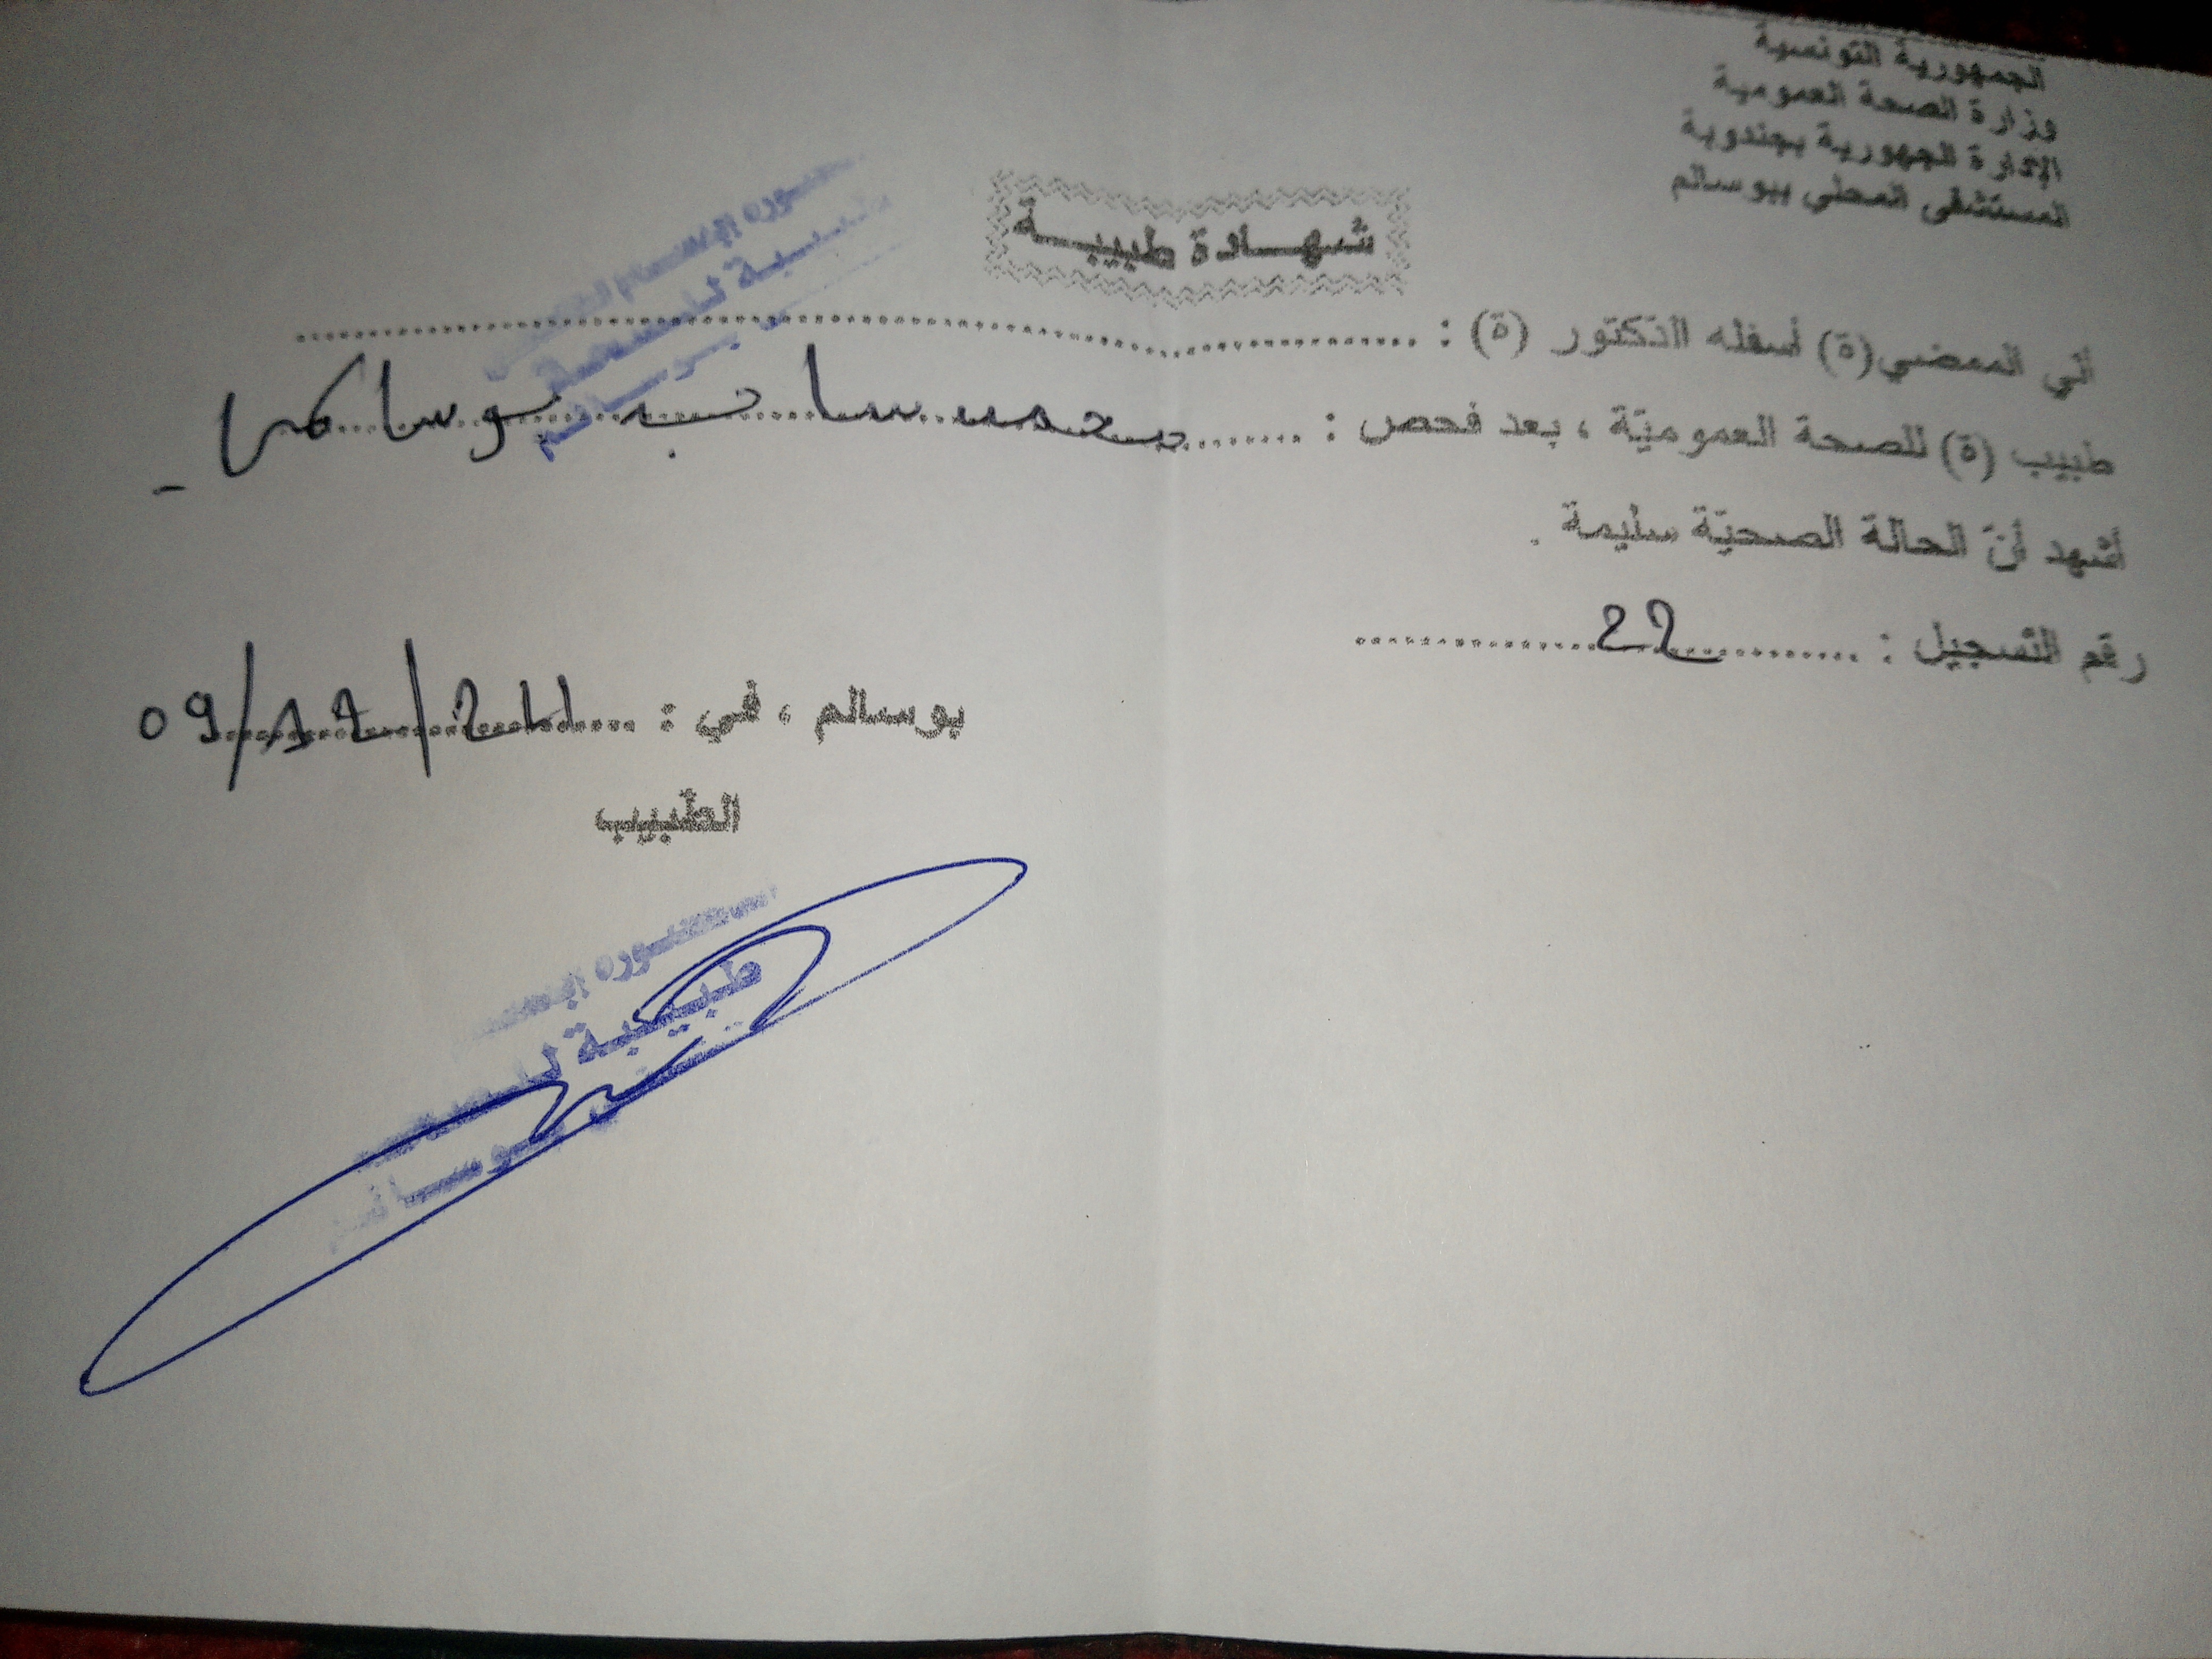 الجمهورية التونسية
وزارة الصحة العمومية
الإدارة الجهورية بجندوبة
المستشفى المحلي ببوسالم
شهادة طبيبة
أني الممضي(ة) أسفله الدكتور (ة) :
طبيب (ة) للصحة العموميّة ، بعد فحص :
أشهد أنّ الحالة الصحيّة سليمة .
رقم التّسجيل : 22
بوسالم ، في : 09/12/2
الطّبيب
طبيبة